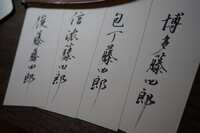 博多藤四郎
包丁藤四郎
信濃藤四郎
後藤藤四郎